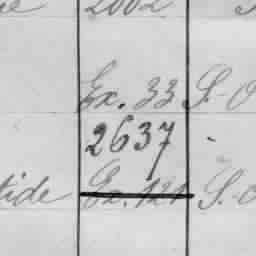 2002
Ex. 33 S. O
2637 -
tide Ex. 121 S. O